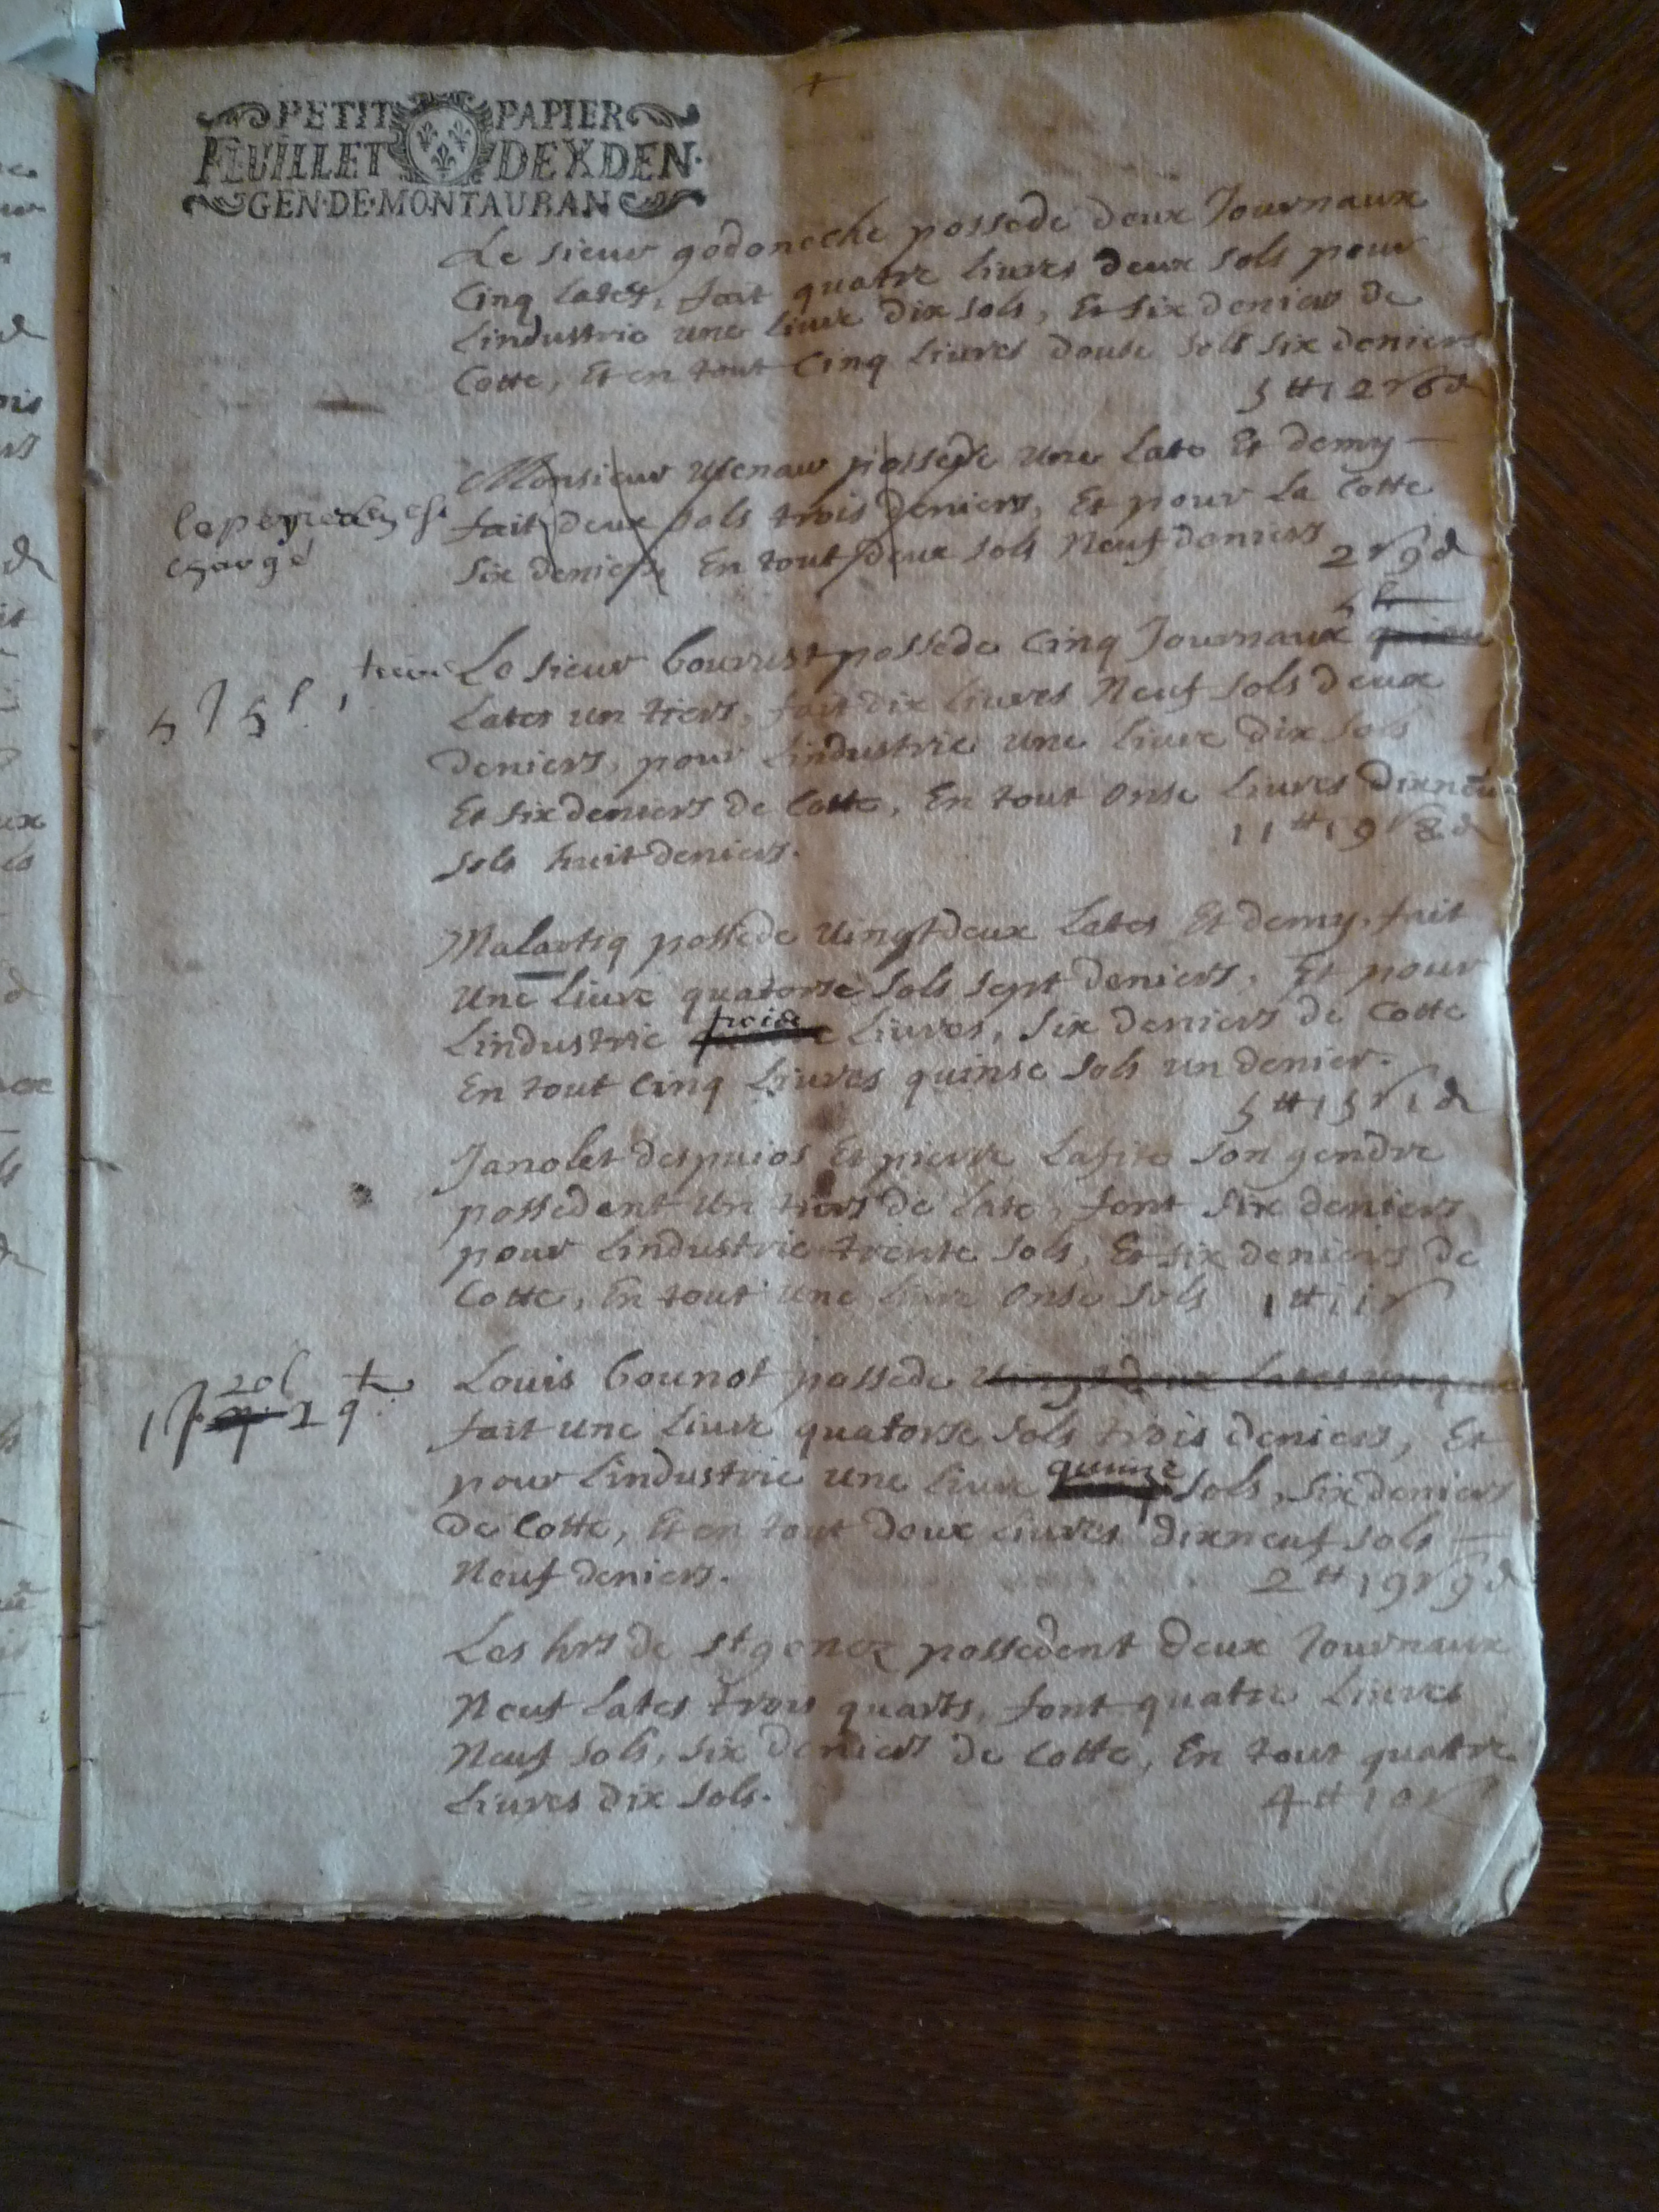 PETIT PAPIER
FEUILLET DE X DEN.
GEN·DE·MONTAUBAN
Le sieur godoneche possede deux Journaux
Cinq lates, fait quatre liures deux sols pour
Lindustrie une liure dix sols, Et six deniers de
Cotte, Et en tout Cinq liures douse sols six deniers
5 tt 12 s 6 d
Monsieur possede une Late Et demy
fait deux sols trois deniers, Et pour La Cotte
Six deniers, En tout deux sols Neuf deniers
2 s 9 d
chargé
5 l
Le sieur bourrust possede Cinq Journaux
5 J 5 l 1
Lates un tiers, fait dix liures Neuf sols deux
deniers, pour Lindustrie une liure dix sols
Et six deniers de Cotte, En tout Onse Liures dixneu
sols huit deniers.
11 tt 19 s 8 d
Malartiq possede Uingt deux Lates Et demy, fait
Une Liure quatorse sols sept deniers, Et pour
Lindustrie Liures, Six deniers de Cotte
En tout Cinq Liures quinse sols un denier.
5 tt 15 s 1 d
Janolet despuios Et pierre Lafite son gendre
possedent un tiers de late, font six deniers
pour Lindustrie trente sols, Et six deniers de
Cotte, En tout une liure Onse sols 1 tt 11 s
20 l
Louis bounot possede Uingt deux Lates
fait une Liure quatorse sols trois deniers, Et
pour Lindustrie une liure quinze sols, six deniers
de Cotte, Et en tout deux Liures dixneuf sols
Neuf deniers.
2 tt 19 s 9 d
Les hrs de st genez possedent deux Journaux
Neuf Lates trois quarts, font quatre Liures
Neuf sols, six deniers de Cotte, En tout quatre
Liures dix sols.
4 tt 10 s